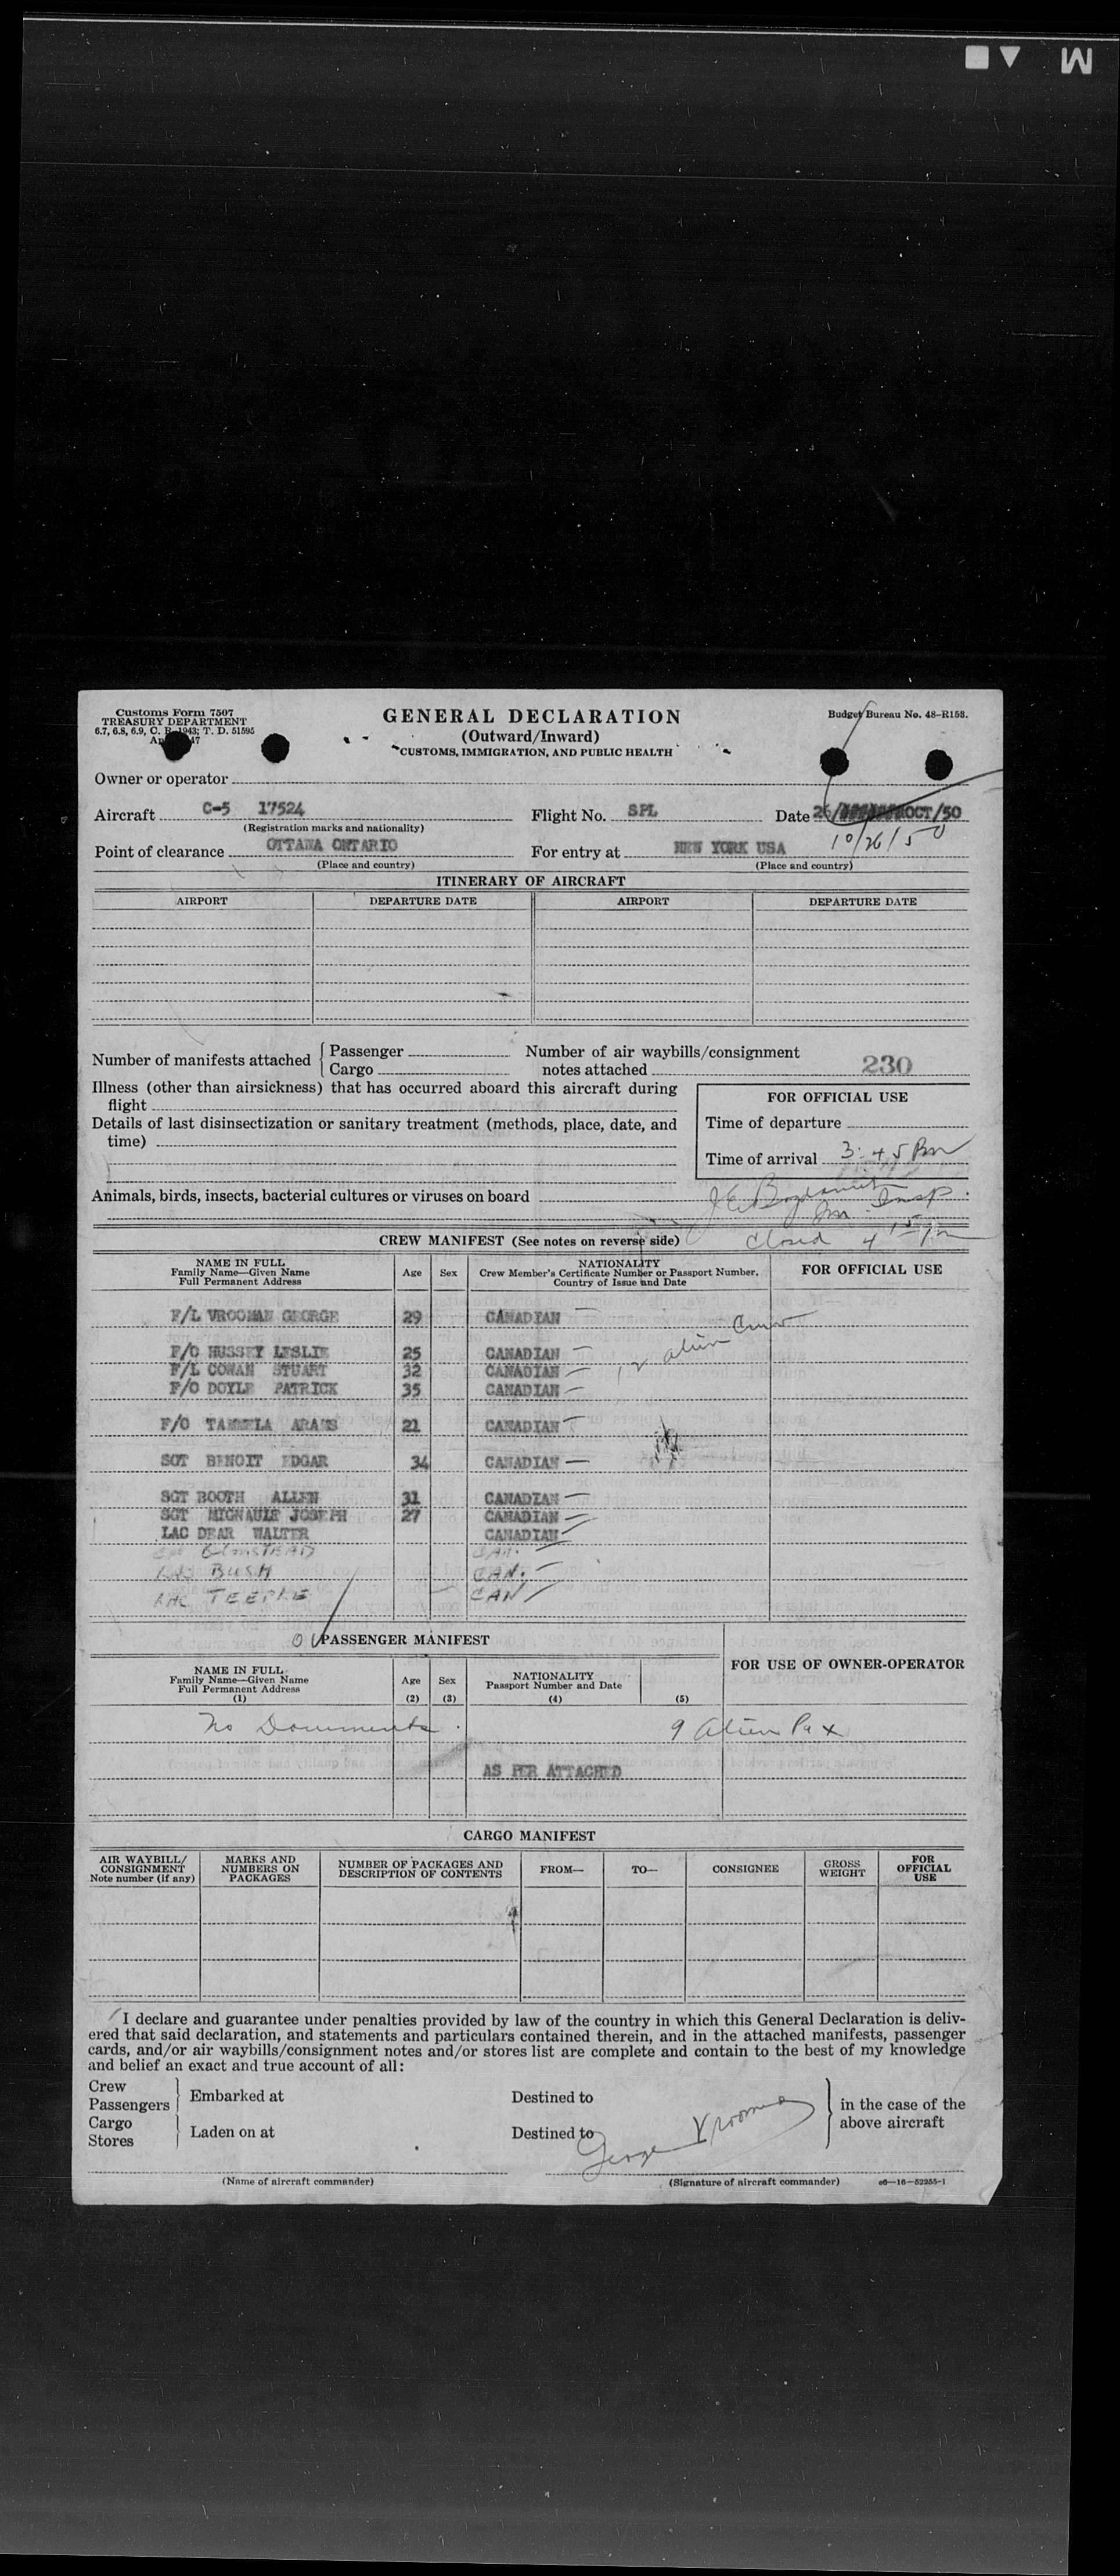 M
Customs Form 7507
TREASURY DEPARTMENT
6.7, 6.8, 6.9, C. R. 1943; T. D. 51595
GENERAL DECLARATION
(Outward/Inward)
CUSTOMS, IMMIGRATION, AND PUBLIC HEALTH
Budget Bureau No. 48-R158.
Owner or operator
Aircraft C-5 17524 Flight No. SPL Date 26/ OCT/50
(Registration marks and nationality)
10/26/50
Point of clearance OTTAWA ONTARIO For entry at NEW YORK USA
(Place and country) (Place and country)
ITINERARY OF AIRCRAFT
AIRPORT DEPARTURE DATE AIRPORT DEPARTURE DATE
Number of manifests attached { Passenger
Cargo
Number of air waybills/consignment
notes attached 230
Illness (other than airsickness) that has occurred aboard this aircraft during
flight
Details of last disinsectization or sanitary treatment (methods, place, date, and
time)
FOR OFFICIAL USE
Time of departure
Time of arrival 3:45 Pm
Animals, birds, insects, bacterial cultures or viruses on board
Im. Insp.
Closed 4 15 Pm
CREW MANIFEST (See notes on reverse side)
NAME IN FULL
Family Name—Given Name
Full Permanent Address
Age Sex
NATIONALITY
Crew Member's Certificate Number or Passport Number,
Country of Issue and Date
FOR OFFICIAL USE
F/L VROOMAN GEORGE 29 CANADIAN —
12 alien Crew
F/O HUSSEY LESLIE 25 CANADIAN —
F/L COWAN STUART 32 CANADIAN —
F/O DOYLE PATRICK 35 CANADIAN —
F/O TAMMELA 21 CANADIAN —
SGT BENOIT EDGAR 34 CANADIAN —
SGT BOOTH ALLEN 31 CANADIAN —
SGT MIGNAULT JOSEPH 27 CANADIAN —
LAC DEAR WALTER CANADIAN —
OLMSTEAD CAN. —
BUSH CAN. —
TEEPLE CAN —
PASSENGER MANIFEST
NAME IN FULL
Family Name—Given Name
Full Permanent Address
(1)
Age
(2)
Sex
(3)
NATIONALITY
Passport Number and Date
(4) (5)
FOR USE OF OWNER-OPERATOR
No Documents. 9 alien Pax
AS PER ATTACHED
CARGO MANIFEST
AIR WAYBILL/
CONSIGNMENT
Note number (if any)
MARKS AND
NUMBERS ON
PACKAGES
NUMBER OF PACKAGES AND
DESCRIPTION OF CONTENTS
FROM— TO— CONSIGNEE
GROSS
WEIGHT
FOR
OFFICIAL
USE
I declare and guarantee under penalties provided by law of the country in which this General Declaration is deliv-
ered that said declaration, and statements and particulars contained therein, and in the attached manifests, passenger
cards, and/or air waybills/consignment notes and/or stores list are complete and contain to the best of my knowledge
and belief an exact and true account of all:
Crew
Passengers
Embarked at Destined to
Cargo
Stores
Laden on at Destined to
in the case of the
above aircraft
George Vrooman
(Name of aircraft commander) (Signature of aircraft commander) c6—16—52255-1